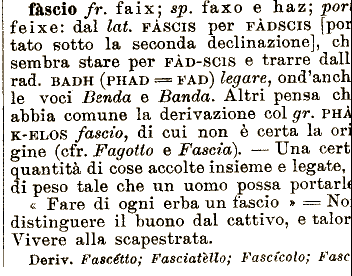 fàscio fr. faix; sp. faxo e haz; por
feixe: dal lat. FÀSCIS per FÀDSCIS [por
tato sotto la seconda declinazione], ch
sembra stare per FÀD-SCIS e trarre dall
rad. BADH (PHAD = FAD) legare, ond'anch
le voci Benda e Banda. Altri pensa ch
abbia comune la derivazione col gr. PHÀ
K-ELOS fascio, di cui non è certa la ori
gine (cfr. Fagotto e Fascia). — Una cert
quantità di cose accolte insieme e legate,
di peso tale che un uomo possa portarle
« Fare di ogni erba un fascio » = No
distinguere il buono dal cattivo, e talor
Vivere alla scapestrata.
Deriv. Fascétto; Fasciatèllo; Fascícolo; Fasc